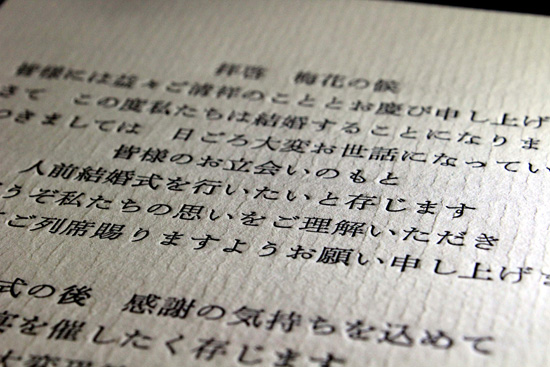 拝啓 梅花の候
皆様には益々ご清祥のこととお慶び申し上げ
さて この度私たちは結婚することになりま
つきましては 日ごろ大変お世話になってい
皆様のお立会いのもと
人前結婚式を行いたいと存じます
うぞ私たちの思いをご理解いただき
ご列席賜りますようお願い申し上げ
式の後 感謝の気持ちを込めて
宴を催したく存じます
大変